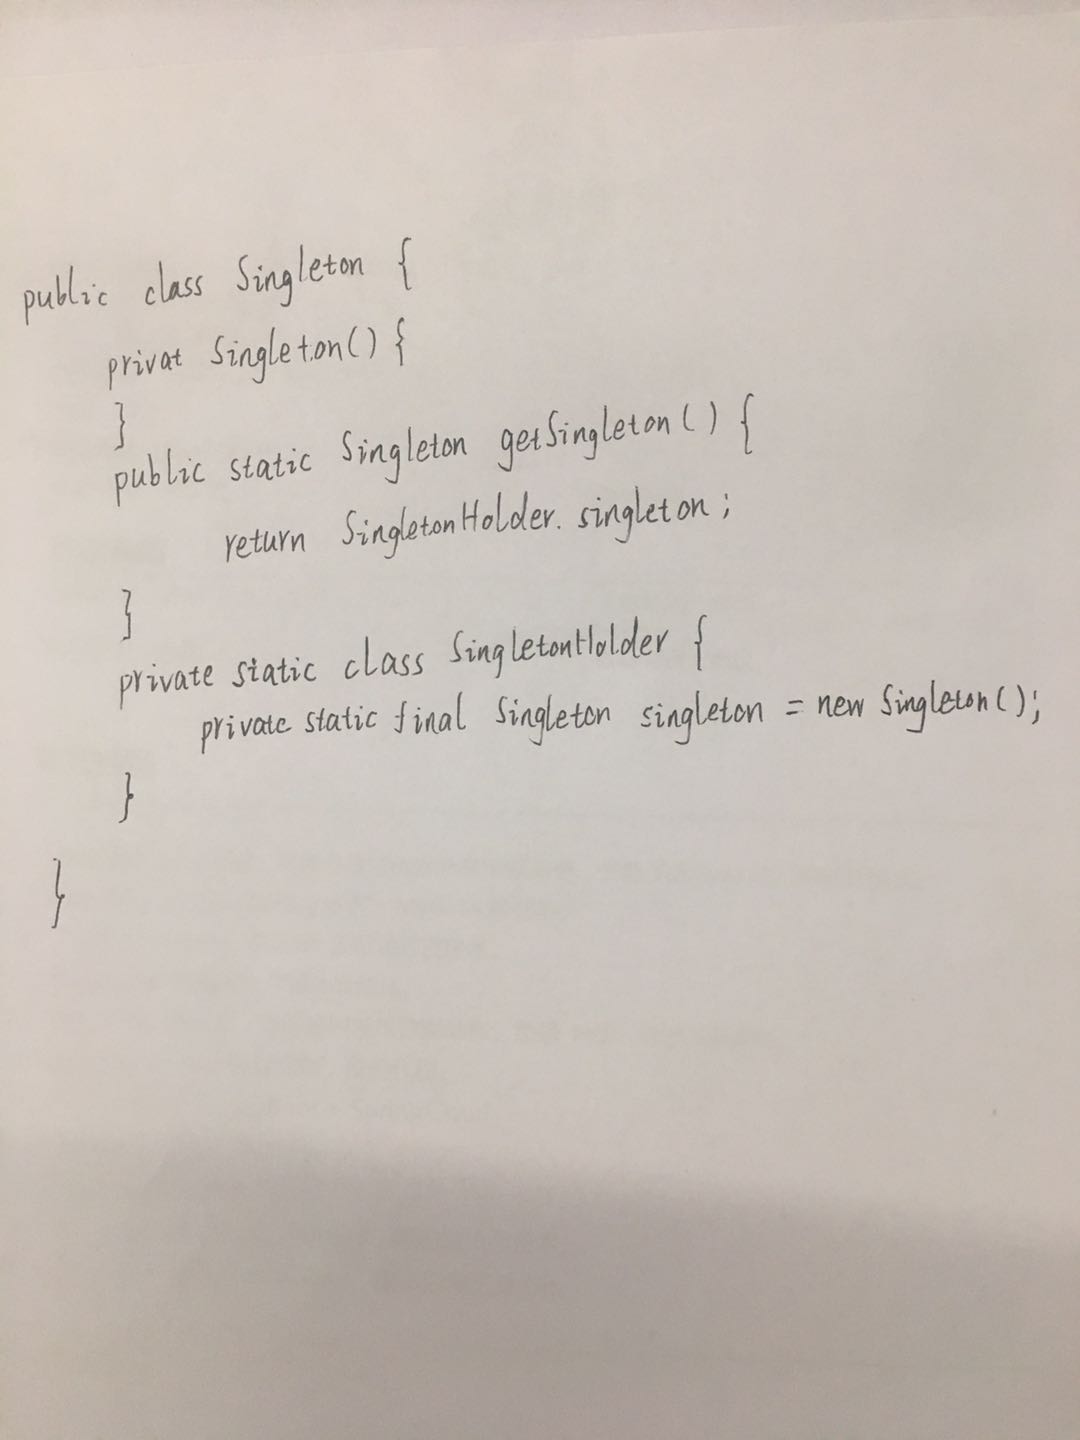 public class Singleton {
privat Singleton() {
}
public static Singleton getSingleton() {
return SingletonHolder.singleton;
}
private static class SingletonHolder {
private static final Singleton singleton = new Singleton();
}
}